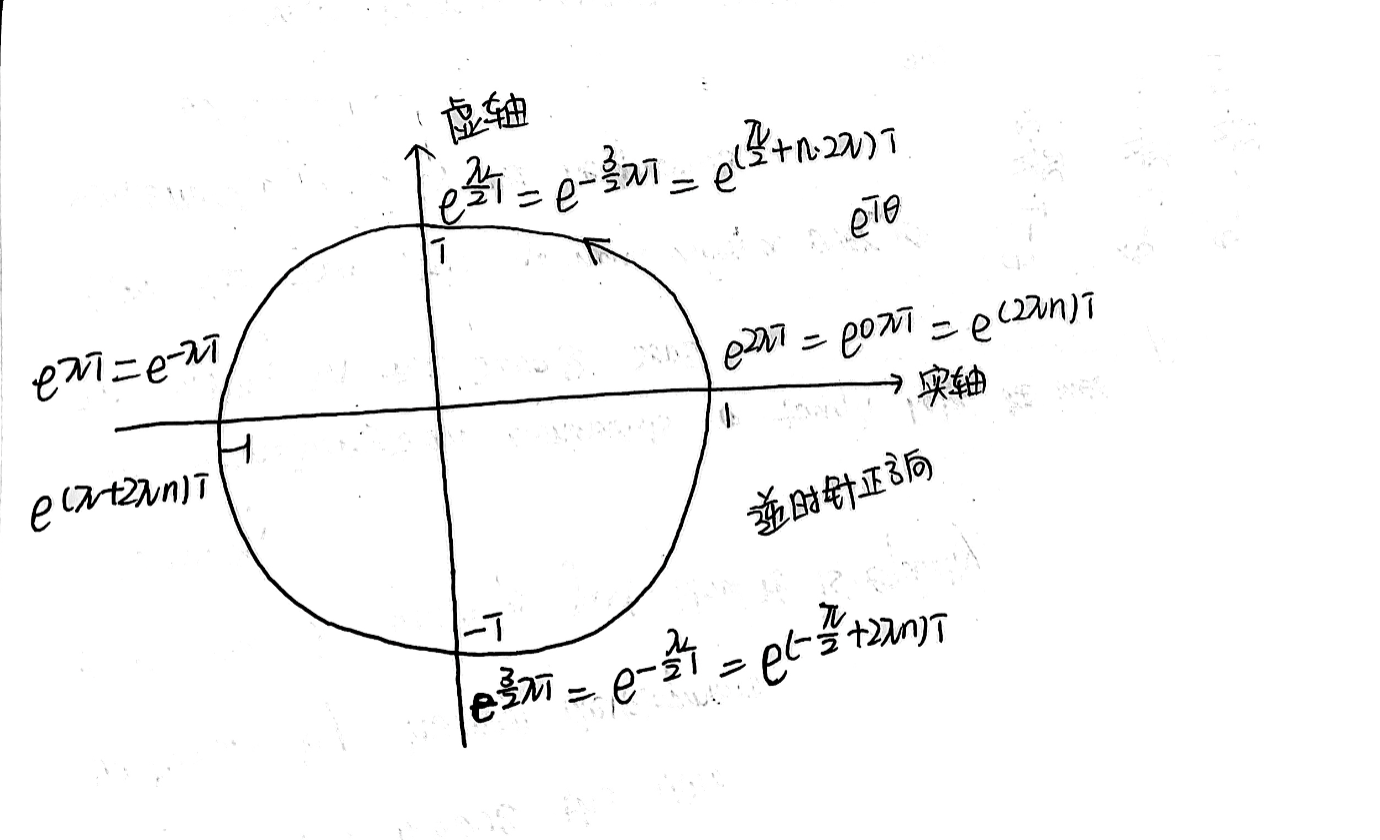 虚轴
e^{\frac{π}{2}i} = e^{-\frac{3}{2}πi} = e^{(\frac{π}{2}+n·2π)i}
e^{iθ}
i
e^{2πi} = e^{0πi} = e^{(2πn)i}
e^{πi} = e^{-πi}
实轴
1
-1
e^{(π+2πn)i}
逆时针正方向
-i
e^{\frac{3}{2}πi} = e^{-\frac{π}{2}i} = e^{(-\frac{π}{2}+2πn)i}